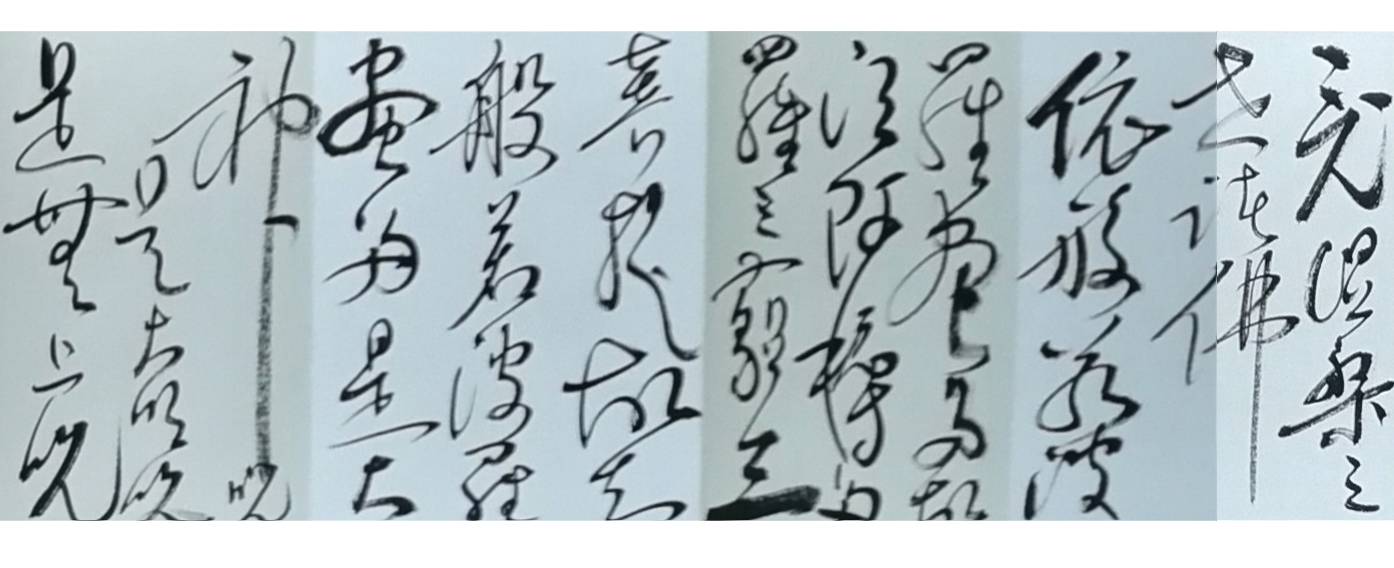 竟涅槃三
世諸佛
依般若波
羅蜜多故
得阿耨多
羅三藐三
菩提故知
般若波羅
蜜多是大
神咒
是大明咒
是無上咒